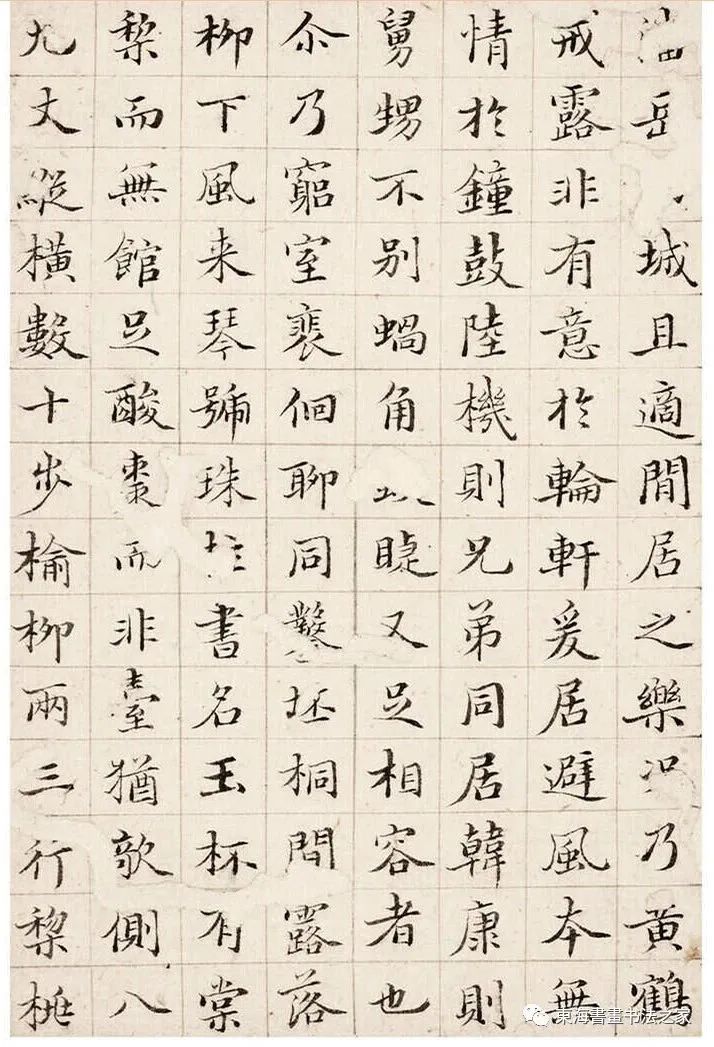 岳城且適閒居之樂乃黄鶴
戒露非有意於輪軒爰居避風本無
情於鐘鼓陸機則兄弟同居韓康則
舅甥不别蝸角睫又足相容者也
尒乃窟室裵佪聊同鑿坯桐間露落
柳下風来琴號珠柱書名玉杯有棠
梨而無館足酸棗而非臺猶欹側八
九丈縱橫數十步榆柳兩三行梨桃
東海書畫书法之家